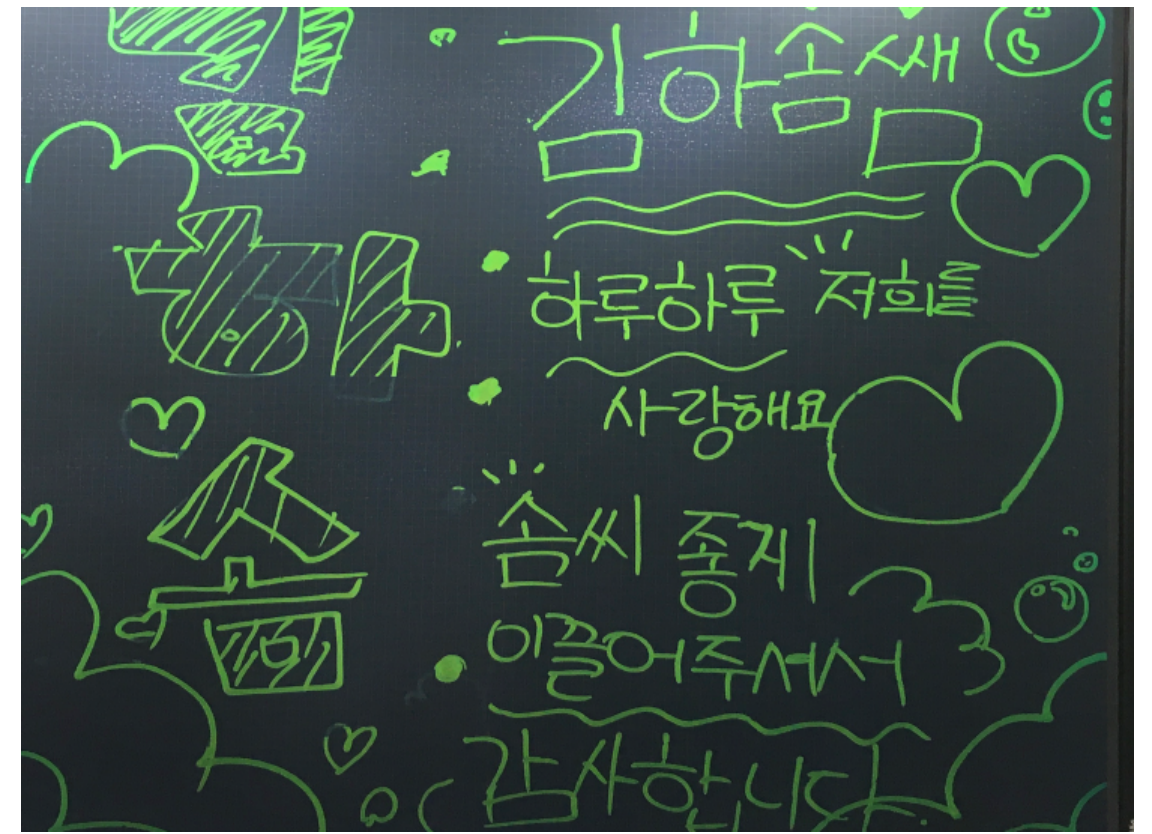 김 김하솜쌤
하 하루하루 저희를
사랑해요
솜 솜씨 좋게
이끌어주셔서
감사합니다